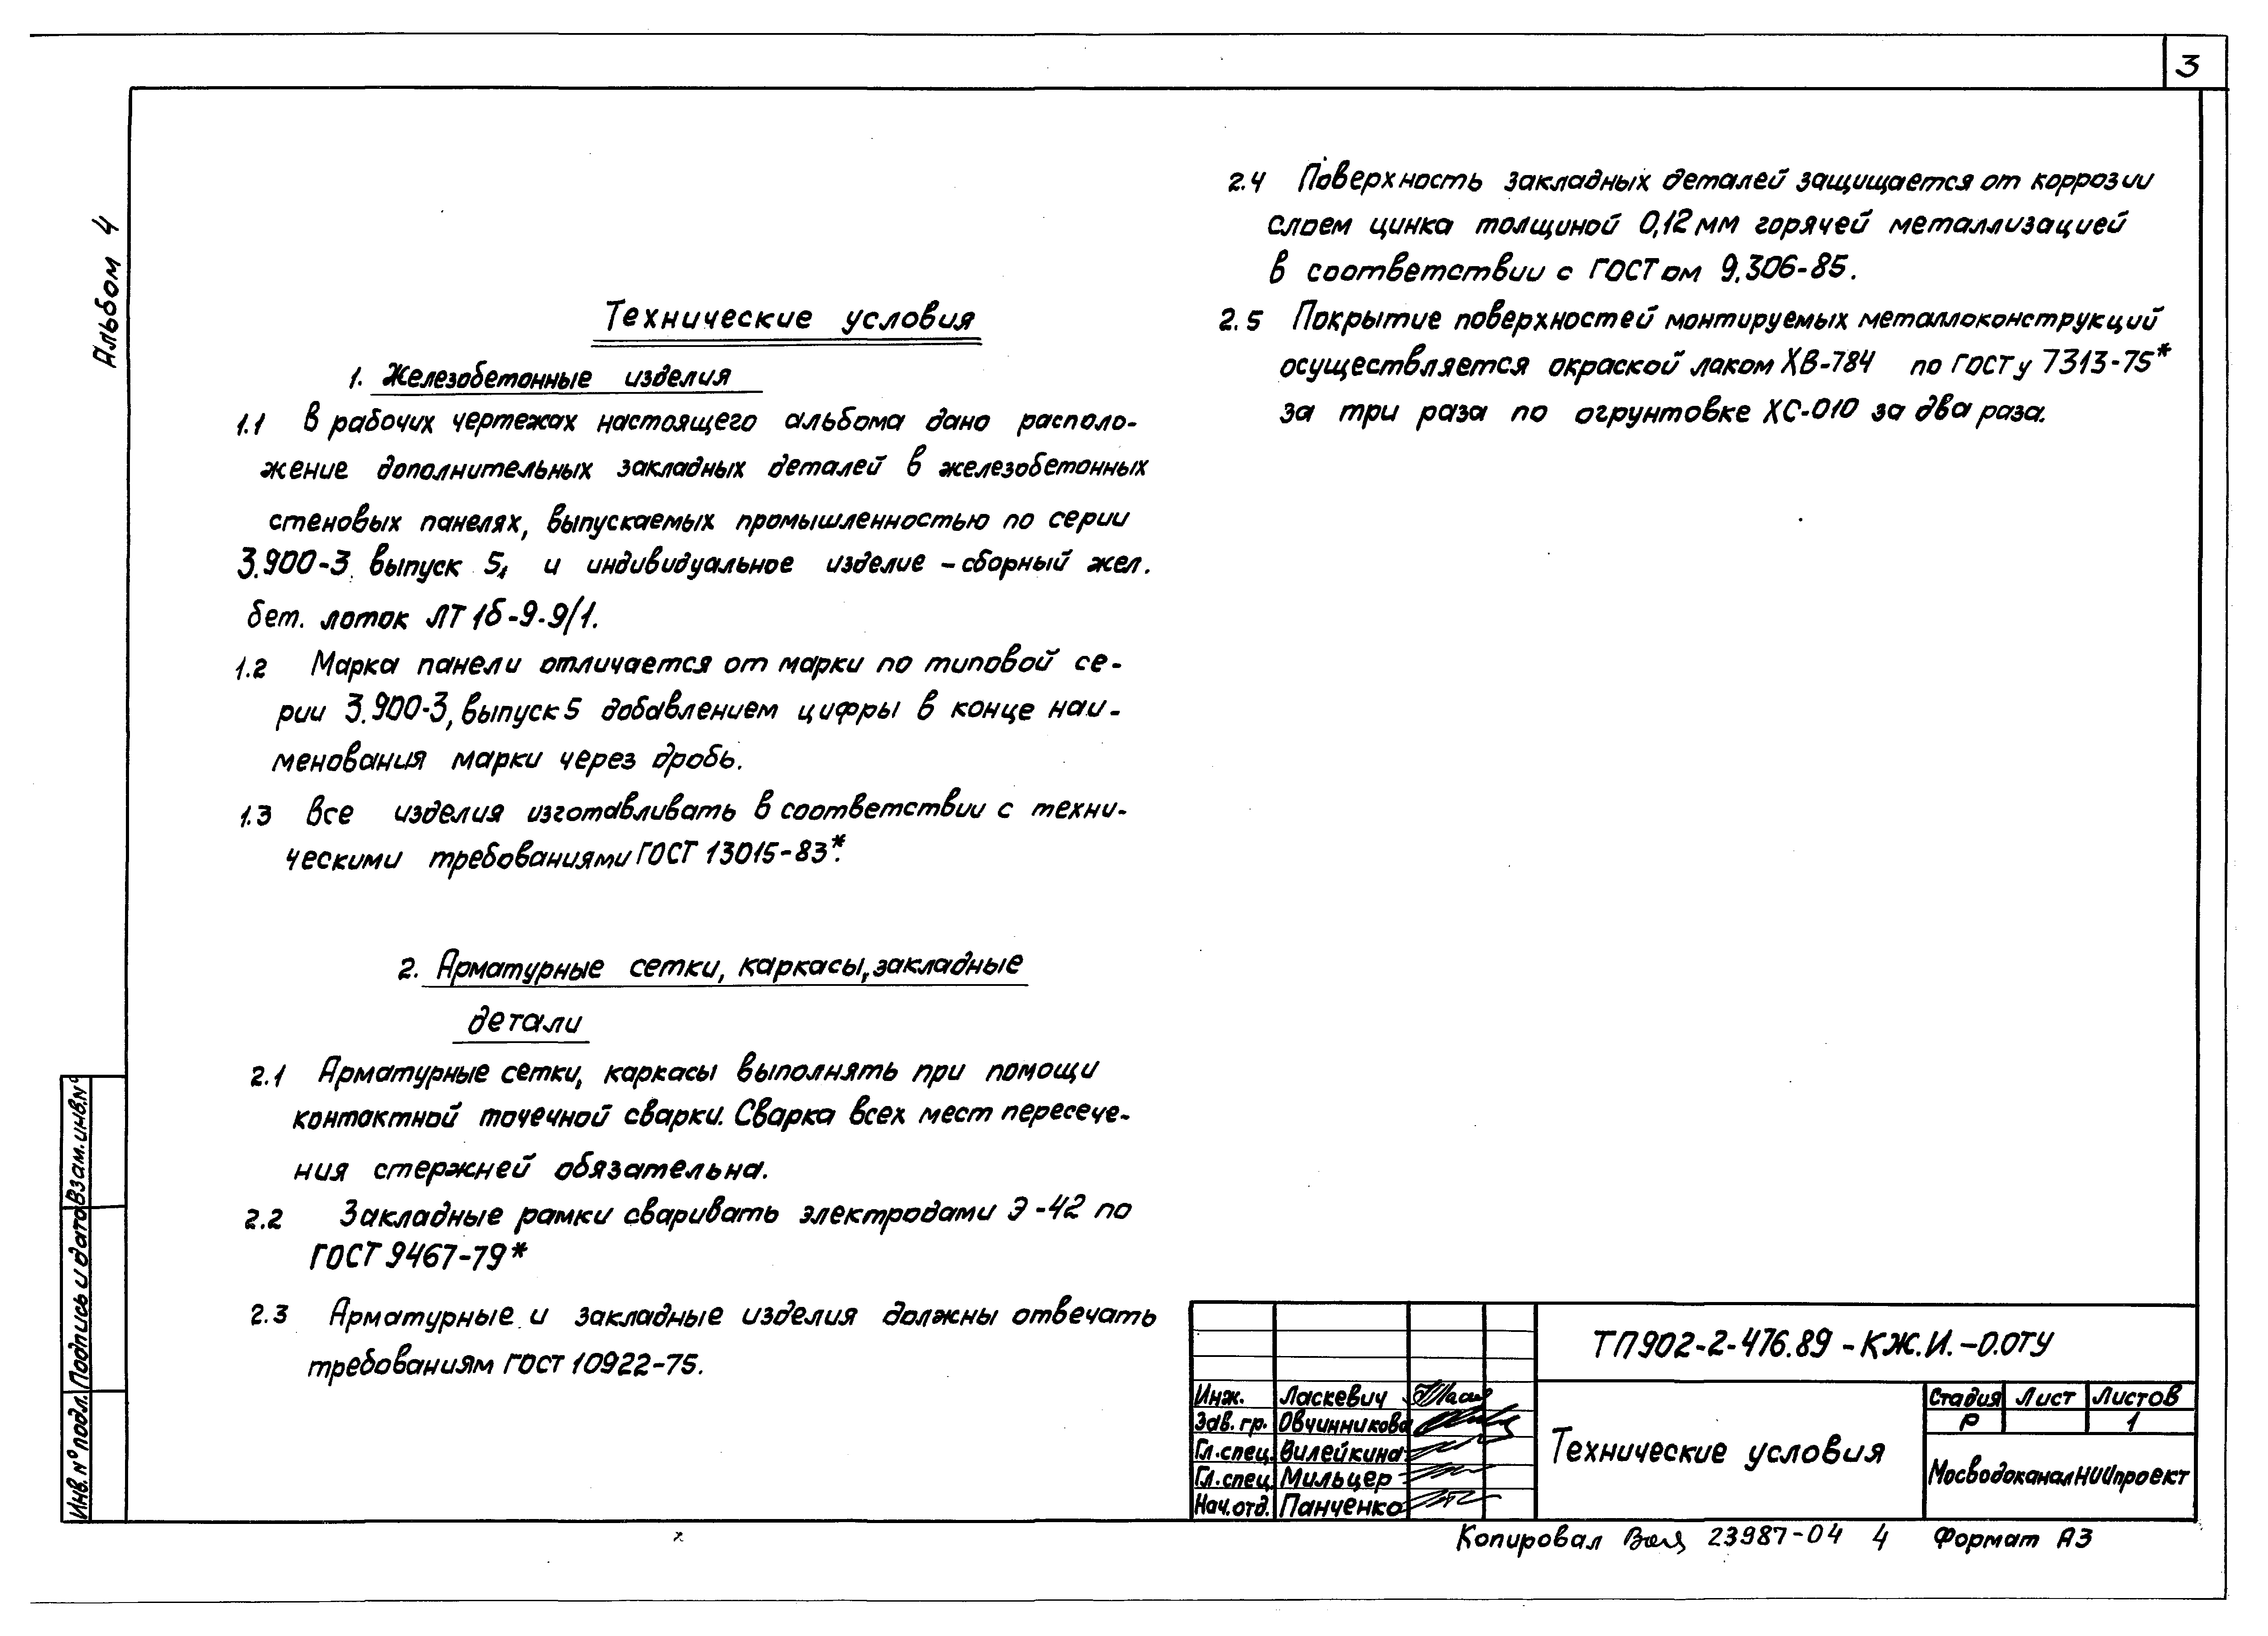 3
Альбом 4
Технические условия
1. Железобетонные изделия
1.1 В рабочих чертежах настоящего альбома дано располо-
жение дополнительных закладных деталей в железобетонных
стеновых панелях, выпускаемых промышленностью по серии
3.900-3 выпуск 5, и индивидуальное изделие - сборный жел.
бет. лоток ЛТ 1б-9-9/1.
1.2 Марка панели отличается от марки по типовой се-
рии 3.900-3, выпуск 5 добавлением цифры в конце наи-
менования марки через дробь.
1.3 Все изделия изготавливать в соответствии с техни-
ческими требованиями ГОСТ 13015-83*.
2. Арматурные сетки, каркасы, закладные
детали
2.1 Арматурные сетки, каркасы выполнять при помощи
контактной точечной сварки. Сварка всех мест пересече-
ния стержней обязательна.
2.2 Закладные рамки сваривать электродами Э-42 по
ГОСТ 9467-79*
2.3 Арматурные и закладные изделия должны отвечать
требованиям ГОСТ 10922-75.
2.4 Поверхность закладных деталей защищается от коррозии
слоем цинка толщиной 0,12 мм горячей металлизацией
в соответствии с ГОСТом 9.306-85.
2.5 Покрытие поверхностей монтируемых металлоконструкций
осуществляется окраской лаком ХВ-784 по ГОСТу 7313-75*
за три раза по огрунтовке ХС-010 за два раза.
Инв. № подл. Подпись и дата Взам. инв. №
ТП902-2-476.89-КЖ.И.-0.0ТУ
Инж. Ласкевич
Зав. гр. Овчинникова
Гл. спец. Вилейкина
Гл. спец. Мильцер
Нач. отд. Панченко
Технические условия
Стадия Лист Листов
Р 1
МосводоканалНИИпроект
Копировал 23987-04 4 Формат А3